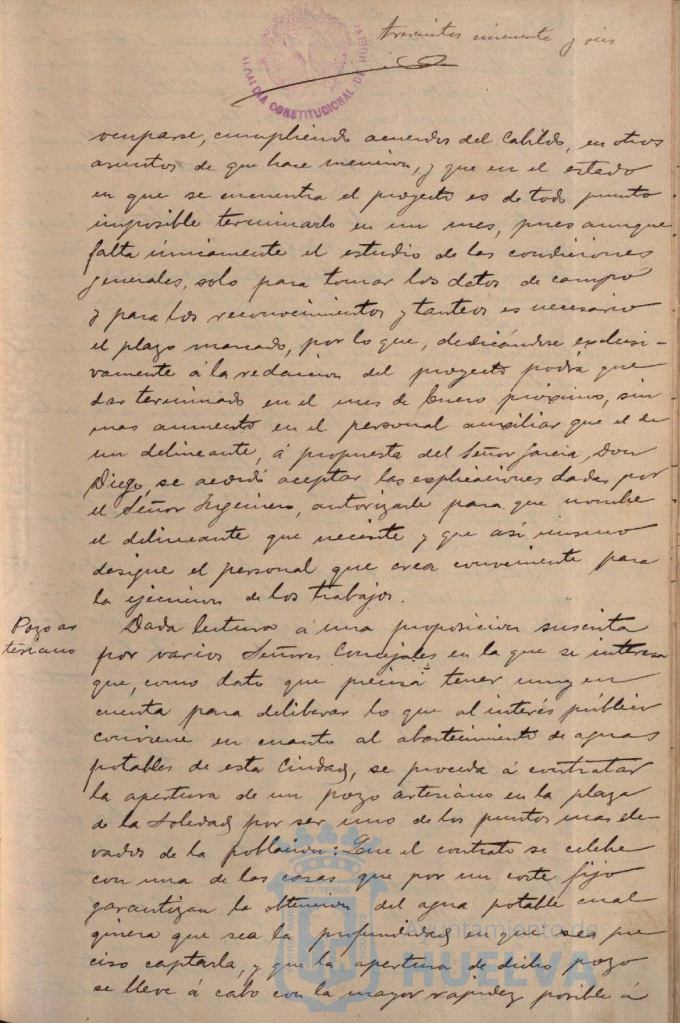 trescientos cincuenta y seis
ALCALDIA CONSTITUCIONAL DE HUELVA
ocuparse, cumpliendo acuerdos del Cabildo, en otros
asuntos de que hace mencion, y que en el estado
en que se encuentra el proyecto es de todo punto
imposible terminarlo en un mes, pues aunque
falta únicamente el estudio de las condiciones
generales, solo para tomar los datos de campo
y para los reconocimientos y tanteos es necesario
el plazo marcado, por lo que, dedicándose exclusi-
vamente á la redaccion del proyecto podrá que
dar terminado en el mes de Enero próximo, sin
mas aumento en el personal auxiliar que el de
un delineante, á propuesta del Señor Garcia, Don
Diego, se acordó aceptar las explicaciones dadas por
el Señor Ingeniero, autorizarle para que nombre
el delineante que necesite y que así mismo
designe el personal que crea conveniente para
la ejecucion de los trabajos.
Pozo ar
tesiano
Dada lectura á una proposicion suscrita
por varios Señores Concejales en la que se interesa
que, como dato que precisa tener muy en
cuenta para deliberar lo que al interés público
conviene en cuanto al abastecimiento de aguas
potables de esta Ciudad, se proceda á contratar
la apertura de un pozo artesiano en la plaza
de la Soledad por ser uno de los puntos mas ele-
vados de la poblacion: Que el contrato se celebre
con una de las casas que por un coste fijo
garantizan la obtencion del agua potable cual
quiera que sea la profundidad en que sea pre
ciso captarla, y que la apertura de dicho pozo
se lleve á cabo con la mayor rapidez posible á
Ayuntamiento de
HUELVA